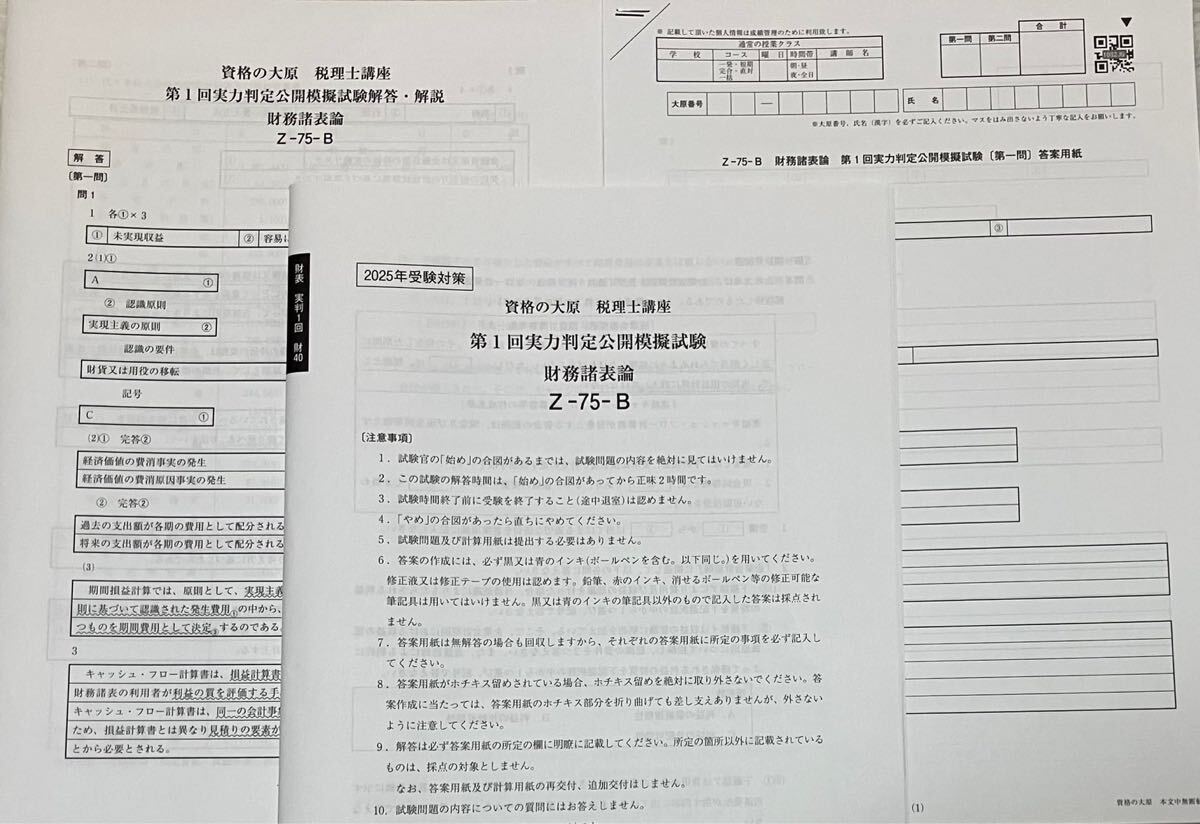 資格の大原 税理士講座
第1回実力判定公開模擬試験解答・解説
財務諸表論
Z-75-B
解答
〔第一問〕
問1
1 各①×3
① 未実現収益 ② 容易に
2(1)①
A ①
② 認識原則
実現主義の原則 ②
認識の要件
財貨又は用役の移転
記号
C ①
(2)① 完答②
経済価値の費消事実の発生
経済価値の費消原因事実の発生
② 完答②
過去の支出額が各期の費用として配分される
将来の支出額が各期の費用として配分される
(3)
期間損益計算では、原則として、実現主義
則に基づいて認識された発生費用①の中から、
つものを期間費用として決定②するのである
3
キャッシュ・フロー計算書は、損益計算書
財務諸表の利用者が利益の質を評価する手
キャッシュ・フロー計算書は、同一の会計事
ため、損益計算書とは異なり見積りの要素が
とから必要とされる。
財表 実判1回 財40
2025年受験対策
資格の大原 税理士講座
第1回実力判定公開模擬試験
財務諸表論
Z-75-B
〔注意事項〕
1.試験官の「始め」の合図があるまでは、試験問題の内容を絶対に見てはいけません。
2.この試験の解答時間は、「始め」の合図があってから正味2時間です。
3.試験時間終了前に受験を終了すること(途中退室)は認めません。
4.「やめ」の合図があったら直ちにやめてください。
5.試験問題及び計算用紙は提出する必要はありません。
6.答案の作成には、必ず黒又は青のインキ(ボールペンを含む。以下同じ。)を用いてください。
修正液又は修正テープの使用は認めます。鉛筆、赤のインキ、消せるボールペン等の修正可能な
筆記具は用いてはいけません。黒又は青のインキの筆記具以外のもので記入した答案は採点され
ません。
7.答案用紙は無解答の場合も回収しますから、それぞれの答案用紙に所定の事項を必ず記入し
てください。
8.答案用紙がホチキス留めされている場合、ホチキス留めを絶対に取り外さないでください。答
案作成に当たっては、答案用紙のホチキス部分を折り曲げても差し支えありませんが、外さない
ように注意してください。
9.解答は必ず答案用紙の所定の欄に明瞭に記載してください。所定の箇所以外に記載されている
ものは、採点の対象としません。
なお、答案用紙及び計算用紙の再交付、追加交付はしません。
10.試験問題の内容についての質問にはお答えしません。
※ 記載して頂いた個人情報は成績管理のために利用致します。
通常の授業クラス
学校 コース 曜日 時間帯 講師名
一発・短期
完合・直対
一括
朝・昼
夜・全日
第一問 第二問 合計
大原番号 ― 氏名
※大原番号、氏名(漢字)を必ずご記入ください。マスをはみ出さないよう丁寧な記入をお願いします。
Z-75-B 財務諸表論 第1回実力判定公開模擬試験〔第一問〕答案用紙
③
(1)
資格の大原 本文中無断